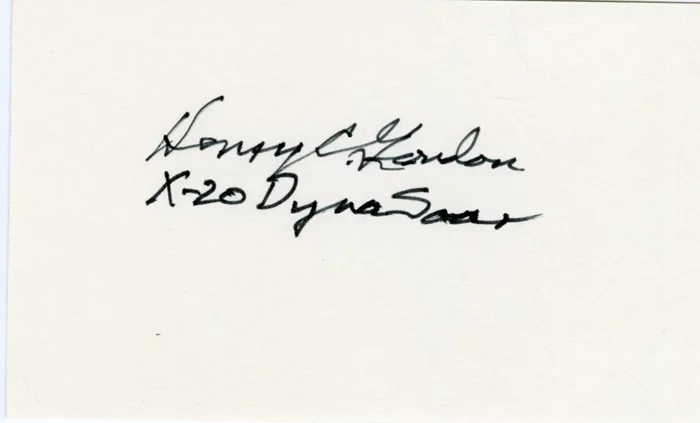 Henry C. Gordon
X-20 DynaSoar